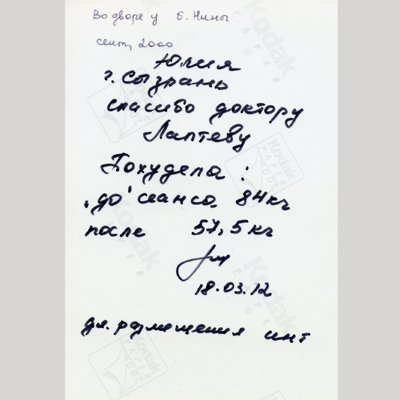 Во дворе у Б. Нины
сент, 2000
Юлия
г. Сызрань
спасибо доктору
Лаптеву
Похудела:
"до" сеанса 84 кг
после 57,5 кг
18.03.12
дл. размещения инт